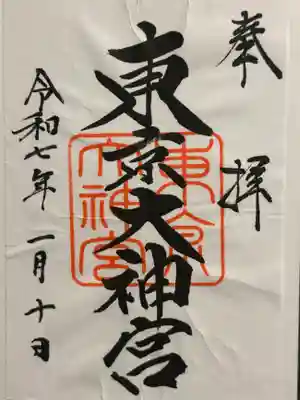 奉拝
東京大神宮
東京大神宮
令和七年一月十日